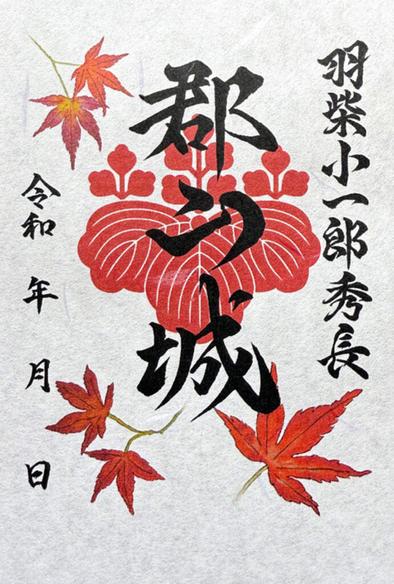 羽柴小一郎秀長
郡山城
令和 年 月 日